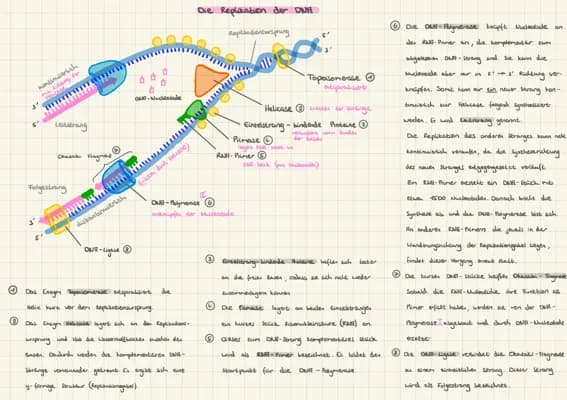 Die Replikation der DNA
kontinuierlich
3'
5'
Leitstrang
DNA-Nucleotide
Replikationsursprung
5'
3'
Topoisomerase ①
entspiralisiert
Helicase ②
Einzelstrang-bindende Proteine ③
Primase ④
RNA-Primer ⑤
Okazaki Fragmente ⑦
Folgestrang
3'
5'
diskontinuierlich
DNA-Polymerase ⑥
verknüpfen der Nucleotide
DNA-Ligase ⑧
① Das Enzym Topoisomerase entspiralisiert die
Helix kurz vor dem Replikationsursprung.
② Das Enzym Helicase lagert sich an den Replikations-
ursprung und löst die Wasserstoffbrücken zwischen den
Basen. Dadurch werden die komplementären DNA-
Stränge voneinander getrennt. Es ergibt sich eine
y-förmige Struktur (Replikationsgabel).
③ Einzelstrang-bindende Proteine heften sich sofort
an die freien Basen, sodass sie sich nicht wieder
zusammenlegen können
④ Die Primase lagert an beiden Einzelsträngen
ein kurzes Stück Ribonukleinsäure (RNA) an
⑤ Dieses zum DNA-Strang komplementäre Stück
wird als RNA-Primer bezeichnet. Es bildet den
Startpunkt für die DNA-Polymerase.
⑥ Die DNA-Polymerase knüpft Nucleotide an
den RNA-Primer an, die komplementär zum
abgelesenen DNA-Strang sind. Sie kann die
Nucleotide aber nur in 5' → 3' Richtung ver-
knüpfen. Somit kann nur ein neuer Strang kon-
tinuierlich zur Helicase folgend synthetisiert
werden. Er wird Leitstrang genannt.
Die Replikation des anderen Stranges kann nicht
kontinuierlich verlaufen, da die Syntheserichtung
des neuen Strangs entgegengesetzt verläuft.
Ein RNA-Primer entsteht ein DNA-Stück mit
etwa 1500 Nucleotiden. Danach bricht die
Synthese ab und die DNA-Polymerase löst sich.
An anderen RNA-Primern die jeweils in der
Wanderungsrichtung der Replikationsgabel liegen,
findet dieser Vorgang erneut statt.
⑦ Die kurzen DNA-Stücke heißen Okazaki-Fragmente.
Sobald die RNA-Nucleotide ihre Funktion als
Primer erfüllt haben, werden sie von der DNA-
Polymerase I abgebaut und durch DNA-Nucleotide
ersetzt.
⑧ Die DNA-Ligase verbindet die Okazaki-Fragmente
zu einem einheitlichen Strang. Dieser Strang
wird als Folgestrang bezeichnet.